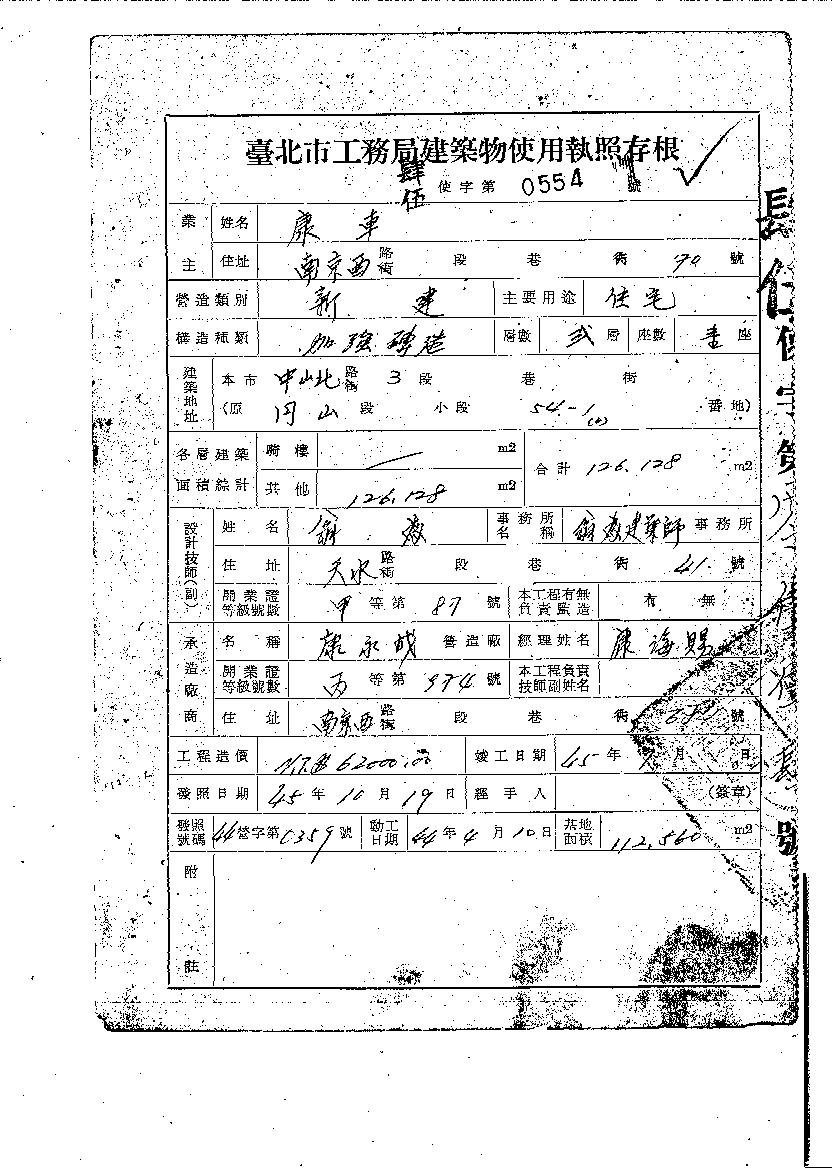 臺北市工務局建築物使用執照存根
肆伍 使字第 0554 號
業主 姓名 康 車
住址 南京西 路街 段 巷 街 號
營造類別 新 建 主要用途 住宅
構造種類 加強磚造 層數 弍 層 座數 壹 座
建築地址 本市 中山北 路街 3 段 巷 街
(原 円山 段 小段 54-1 番地)
各層建築面積綜計 騎樓 m2 合計 126.128 m2
其他 126.128 m2
設計技師(副) 姓名 事務所名稱 建築師 事務所
住址 天水 路街 段 巷 街 41 號
開業證等級號數 甲 等第 87 號 本工程有無負責監造 有 無
承造廠商 名稱 康永成 營造廠 經理姓名 康海賜
開業證等級號數 丙 等第 974 號 本工程負責技師副姓名
住址 南京西 路街 段 巷 街 號
工程造價 N.T.$ 62000.00 竣工日期 45 年 月 日
發照日期 45 年 10 月 19 日 經手人 (簽章)
發照號碼 44 營字第 0359 號 動工日期 44 年 4 月 10 日 基地面積 112.560 m2
附註